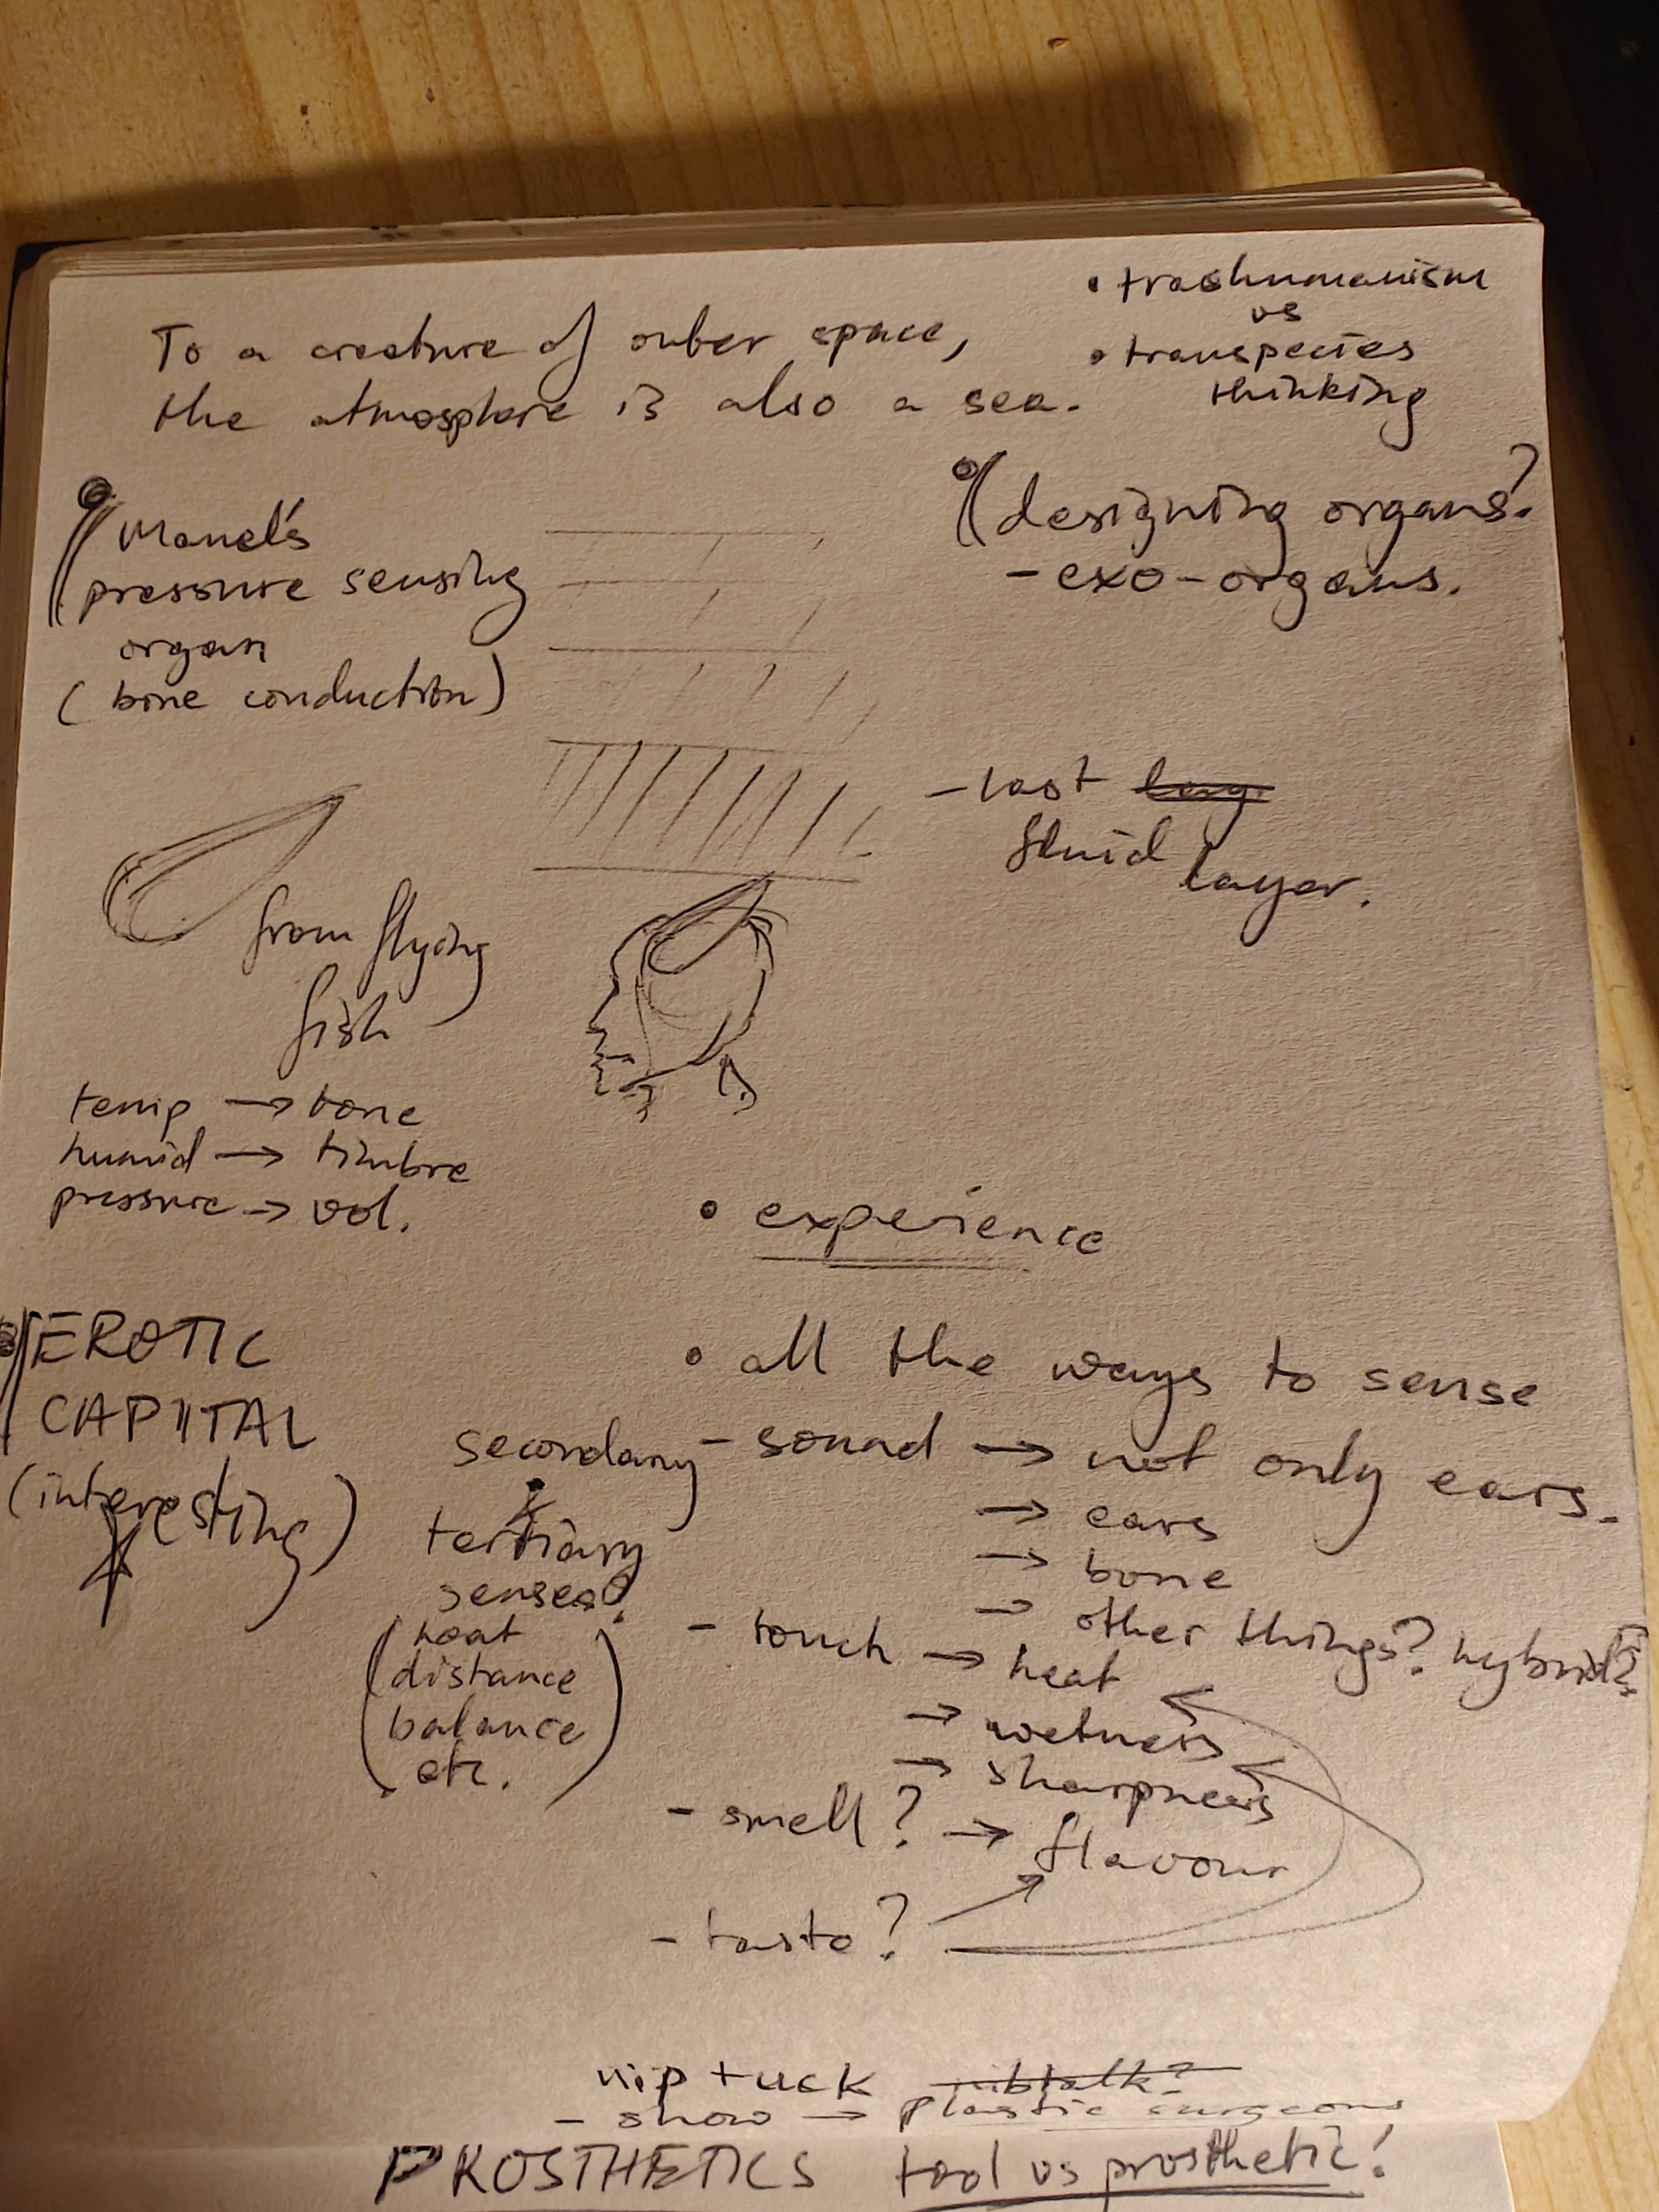 To a creature of outer space,
the atmosphere is also a sea.
• trashumanism
vs
• transpecies
thinking
Manel's
pressure sensing
organ
(bone conduction)
designing organs?
- exo-organs.
- last
fluid
layer.
from flying
fish
temp → tone
humid → timbre
pressure → vol.
• experience
EROTIC
CAPITAL
(interesting)
• all the ways to sense
secondary
tertiary
senses?
(heat
distance
balance
etc.)
- sound → not only ears.
→ ears
→ bone
→ other things? hybrid?
- touch → heat
→ wetness
→ sharpness
- smell? → flavour
- taste?
nip tuck nibtalk?
- show → plastic surgeons
PROSTHETICS tool vs prosthetic!